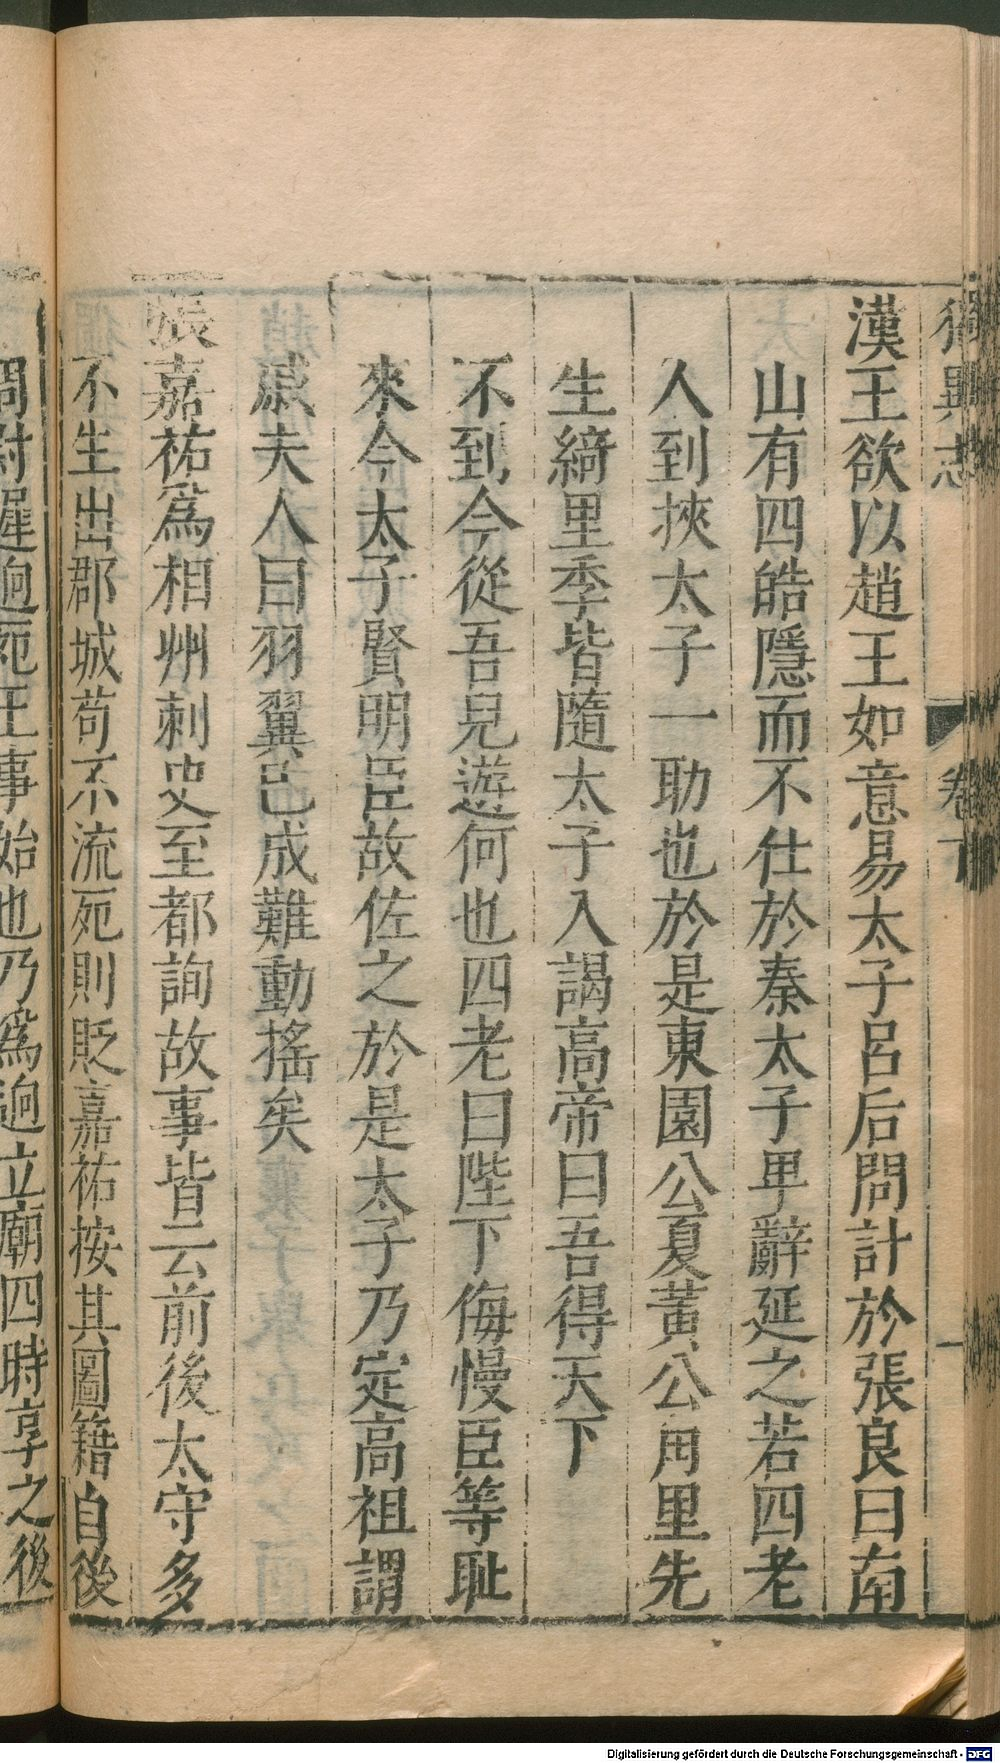 獨異志 卷下 一
漢王欲以趙王如意易太子呂后問計於張良曰南
山有四皓隱而不仕於秦太子卑辭延之若四老
人到挾太子一助也於是東園公夏黃公甪里先
生綺里季皆隨太子入謁高帝曰吾得天下
不到今從吾兒遊何也四老曰陛下侮慢臣等恥
來今太子賢明臣故佐之於是太子乃定高祖謂
戚夫人曰羽翼已成難動搖矣
張嘉祐為相州刺史至都詢故事皆云前後太守多
不生出郡城苟不流死則貶嘉祐按其圖籍自後
尉遲逈死王事始也乃為逈立廟四時享之後
Digitalisierung gefördert durch die Deutsche Forschungsgemeinschaft - DFG